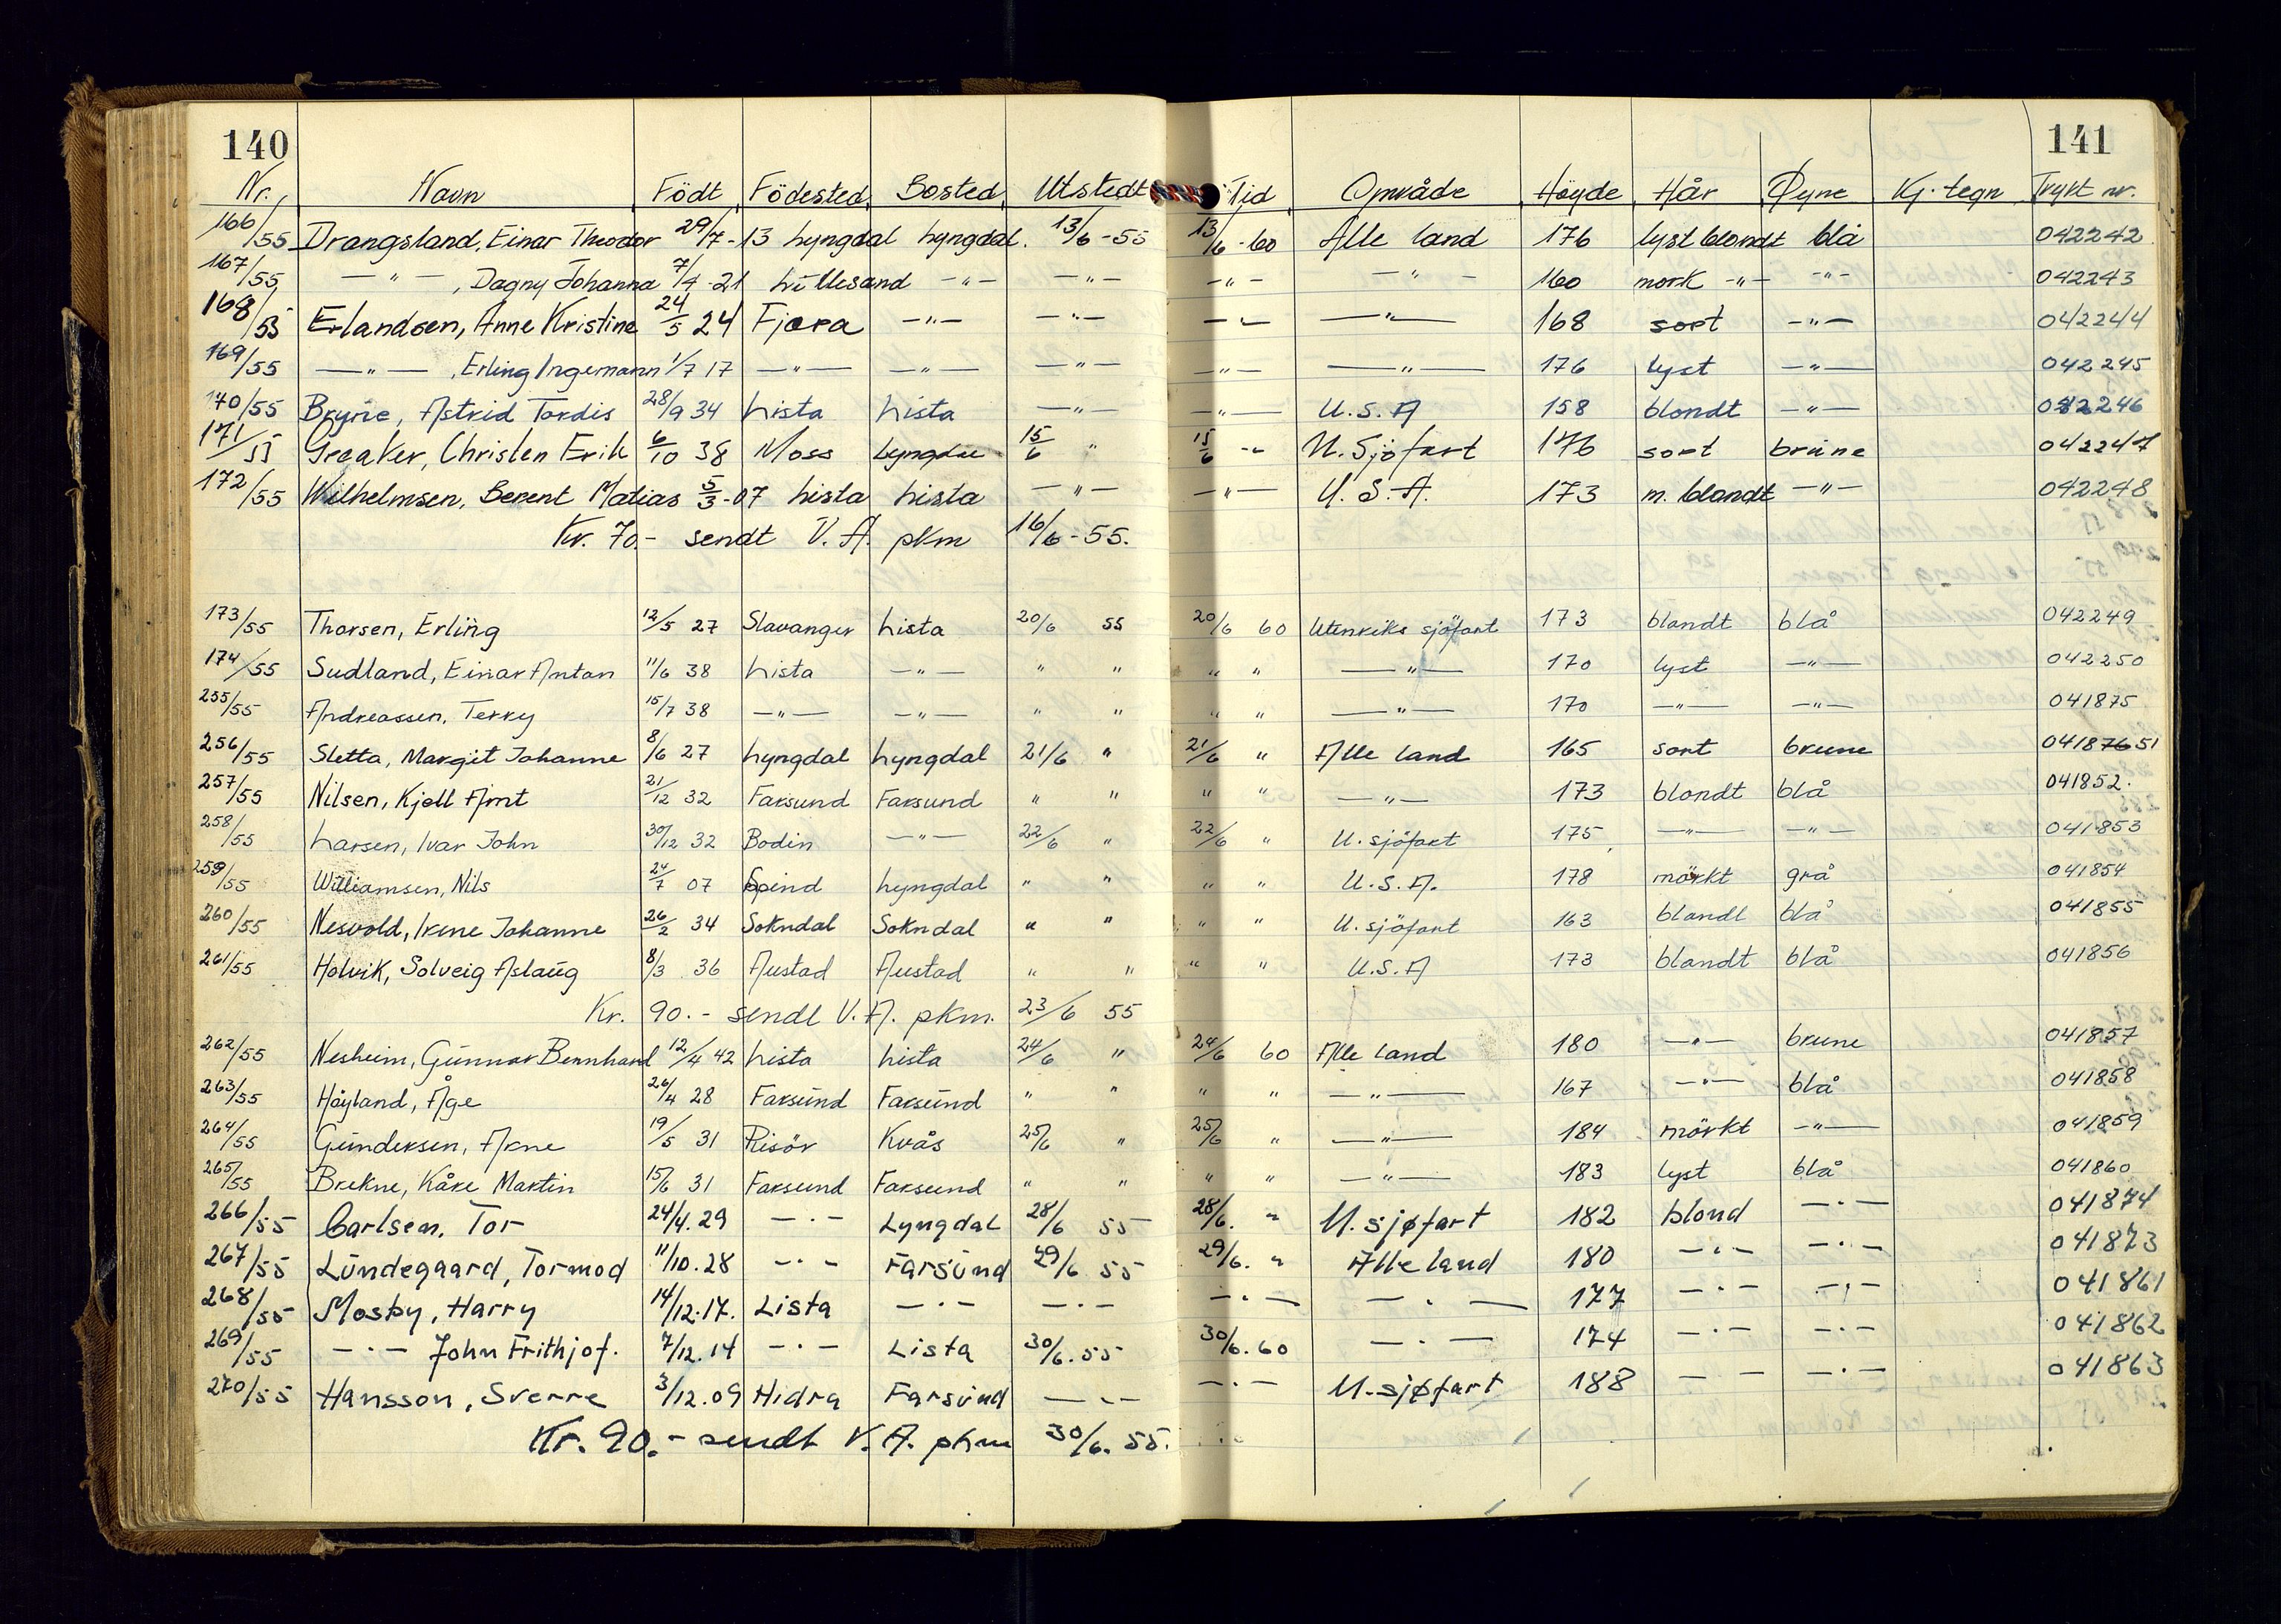 140 141
Nr. Navn Födt Födested Bosted Utstedt Tid Område Höyde Hår Øyne Kj. tegn Trykt nr.
166/55 Drangsland, Einar Theodor 29/7-13 Lyngdal Lyngdal. 13/6-55 13/6-60 Alle land 176 lyst blondt blå 042242
167/55 —"— , Dagny Johanna 7/4-21 Lillesand —"— —"— —"— —"— 160 mork —"— —"— 042243
168/55 Erlandsen, Anne Kristine 24/5 24 Fjæra —"— —"— —"— —"— 168 sort —"— 042244
169/55 —"— , Erling Ingemann 1/7 17 —"— —"— —"— —"— —"— 176 lyst —"— 042245
170/55 Bryne, Astrid Tordis 28/9 34 Lista Lista —"— —"— U.S.A 158 blondt —"— 042246
171/55 Greaker, Christen Erik 6/10 38 Moss Lyngdal 15/6 " 15/6 -"- U. Sjöfart 176 sort brune 042247
172/55 Wilhelmsen, Berent Matias 5/3-07 Lista Lista —"— —"— U.S.A. 173 m. blondt —"— 042248
Kr. 70.- sendt V.A. pkm 16/6-55.
173/55 Thorsen, Erling 12/5 27 Stavanger Lista 20/6 55 20/6 60 Utenriks sjöfart 173 blondt blå 042249
174/55 Sudland, Einar Anton 11/6 38 Lista —"— " " " " —"— 170 lyst —"— 042250
255/55 Andreassen, Terry 15/7 38 —"— —"— " " " " —"— 170 —"— —"— 041875
256/55 Sletta, Margit Johanne 8/6 27 Lyngdal Lyngdal 21/6 " 21/6 " Alle land 165 sort brune 04187651
257/55 Nilsen, Kjell Arnt 21/12 32 Farsund Farsund " " " " —"— 173 blondt blå 041852.
258/55 Larsen, Ivar John 30/12 32 Bodin —"— 22/6 " 22/6 " U. sjöfart 175 —"— —"— 041853
259/55 Williamsen, Nils 24/7 07 Spind Lyngdal " " " " U.S.A. 178 mörkt grå 041854
260/55 Nesvold, Irene Johanne 26/2 34 Sokndal Sokndal " " " " U. sjöfart 163 blondt blå 041855
261/55 Holvik, Solveig Aslaug 8/3 36 Austad Austad " " " " U.S.A 173 blondt blå 041856
Kr. 90.- sendt V.A. pkm. 23/6 55
262/55 Nesheim, Gunnar Bernhard 12/4 42 Lista Lista 24/6 " 24/6 60 Alle land 180 —"— brune 041857
263/55 Höyland, Åge 26/4 28 Farsund Farsund " " " " —"— 167 —"— blå 041858
264/55 Gundersen, Arne 19/5 31 Risör Kvås 25/6 " 25/6 " —"— 184 mörkt —"— 041859
265/55 Brekne, Kåre Martin 15/6 31 Farsund Farsund " " " " —"— 183 lyst blå 041860
266/55 Carlsen, Tor 24/4.29 —·— Lyngdal 28/6 55 28/6. " U. sjøfart 182 blond —·— 041874
267/55 Lundegaard, Tormod 11/10.28 —·— Farsund 29/6 55 29/6. " Alle land 180 —·— —·— 041873
268/55 Mosby, Harry 14/12.17. Lista —·— —·— —·— —·— 177 —·— —·— 041861
269/55 —·— John Frithjof. 7/12.14 —·— Lista 30/6.55 30/6.60 —·— 174 —·— —·— 041862
270/55 Hansson, Sverre 3/12.09 Hidra Farsund —·— —·— U. sjøfart 188 —·— —·— 041863
Kr. 90.- sendt V.A. pkm 30/6. 55.